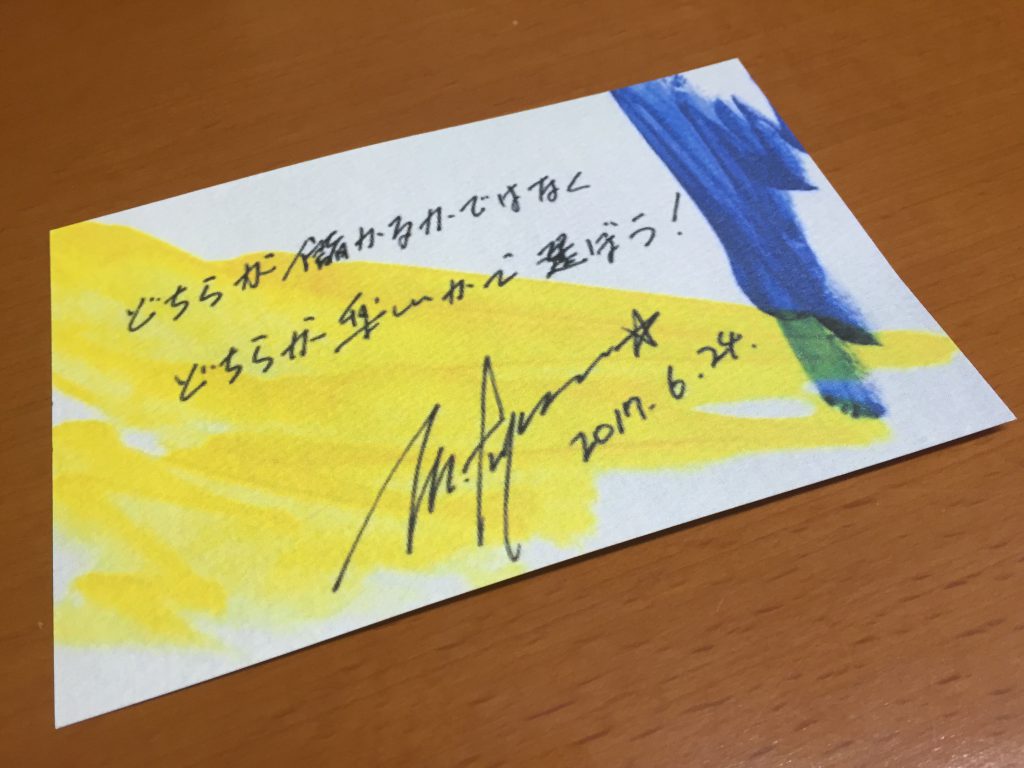 どちらが儲かるかではなく
どちらが楽しいかで選ぼう!
2017.6.24.